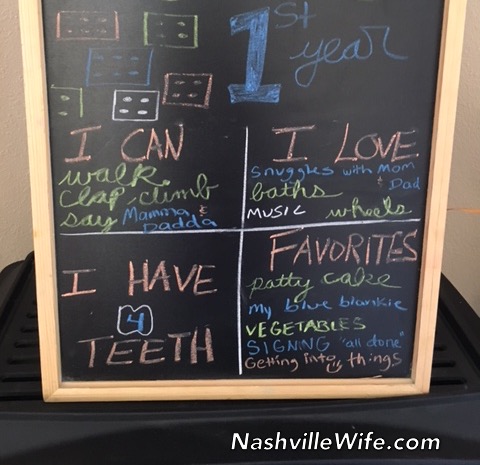 1st
year
I CAN
walk
clap, climb
say Mamma &
Dadda
I LOVE
snuggles with Mom
& Dad
baths
MUSIC wheels
I HAVE
4
TEETH
FAVORITES
patty cake
my blue blankie
VEGETABLES
SIGNING "all done"
Getting into things
NashvilleWife.com